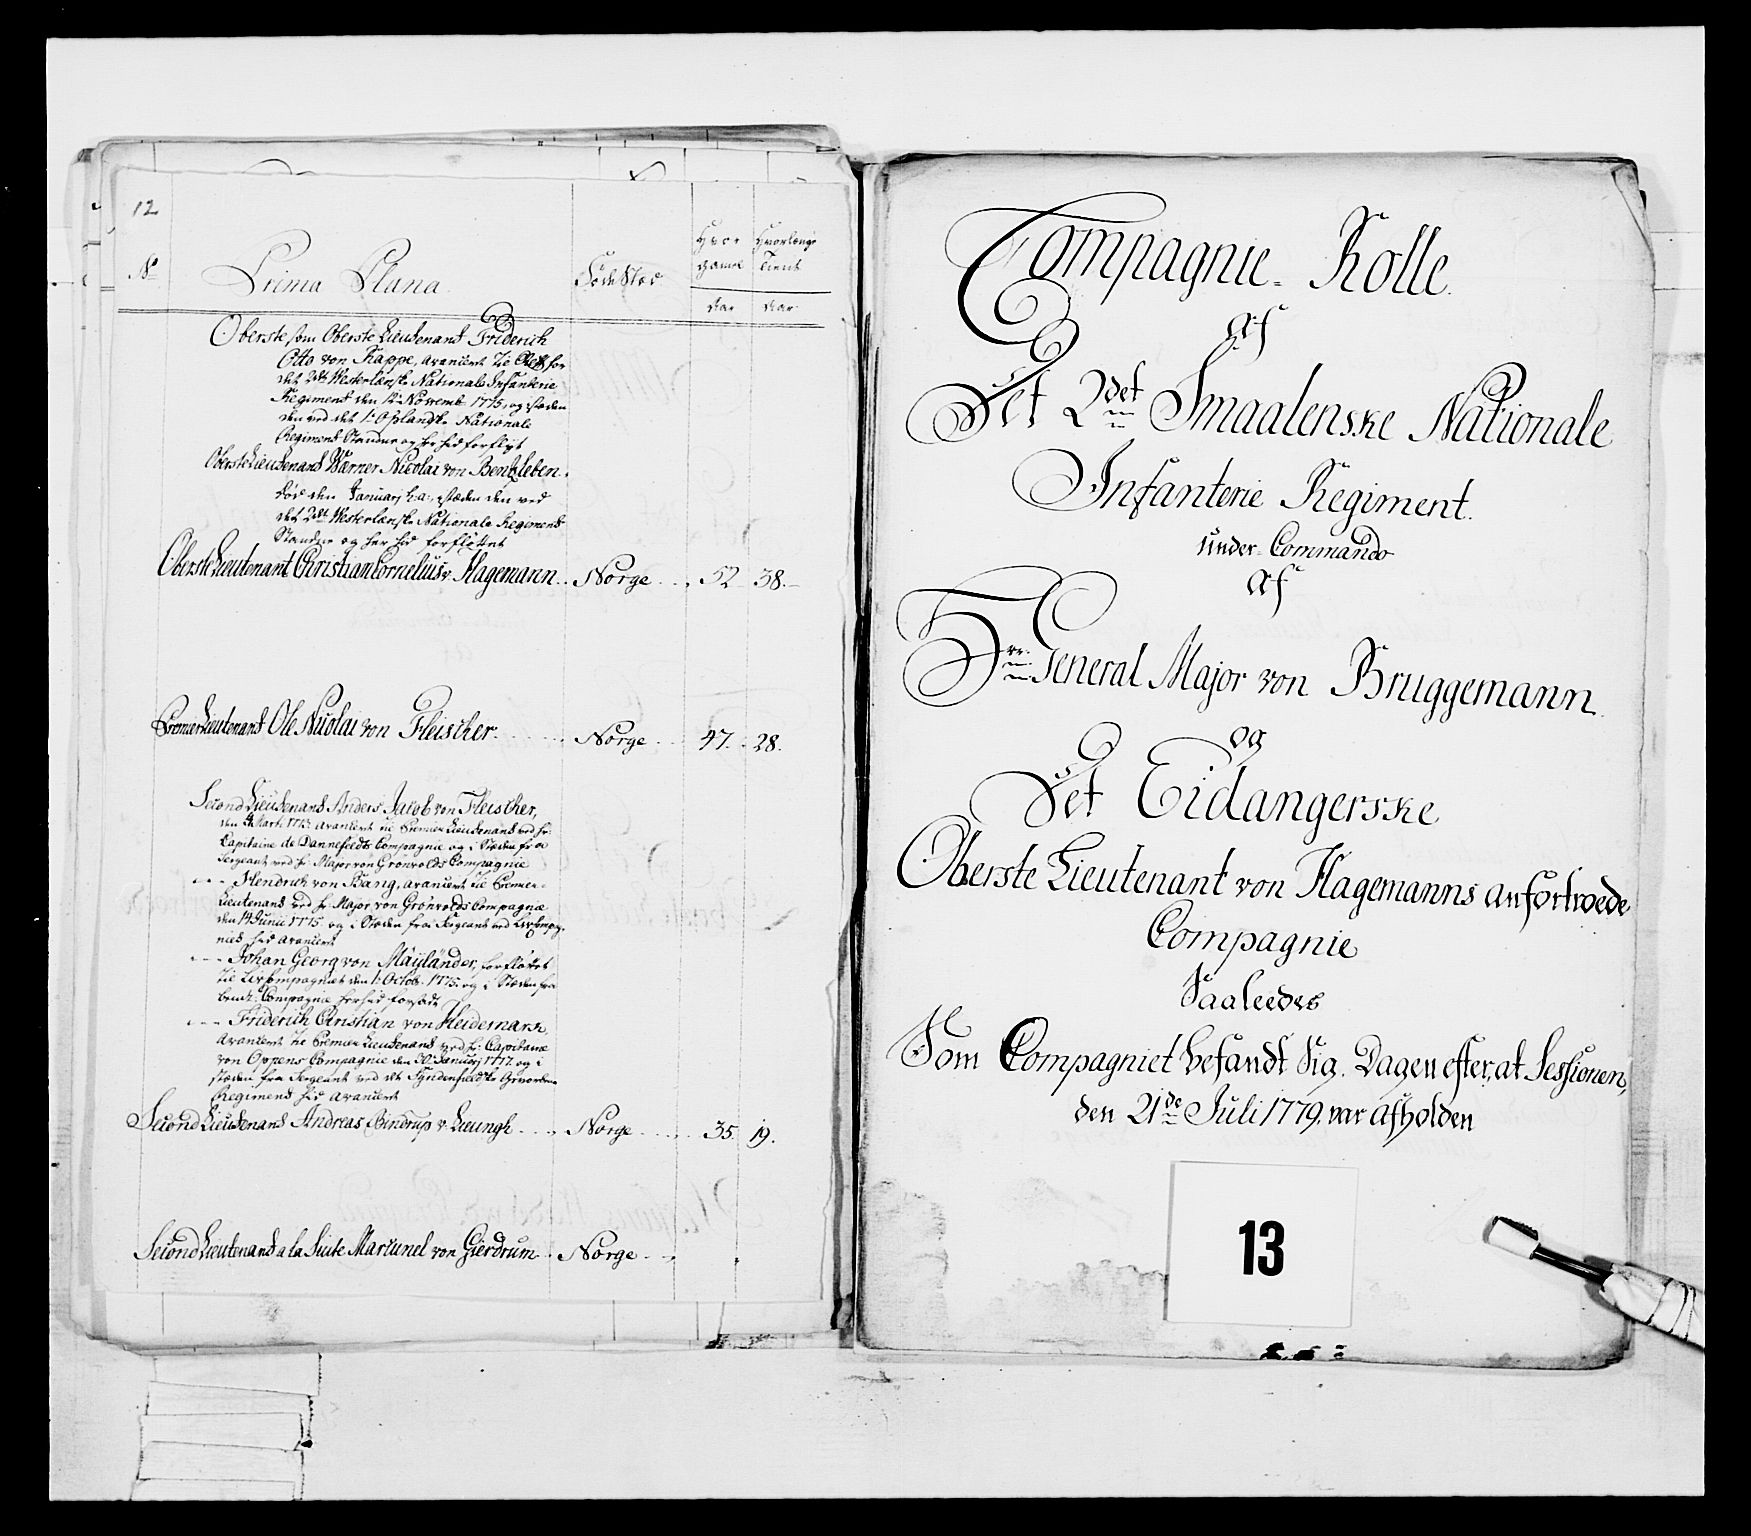 12
No
Prima Plana
Føde Sted
Hvor
gamel
Aar
Hvorlænge
tient
Aar
Oberste, som Oberste Lieutenant Friderich
Otto von Kappe, avanceret til Chef for
det 2det Westerlænske Nationale Infanterie
Regiment den 14 Novemb: 1775, og i stæden
den ved det 1ste Oplandske Nationale
Regiment Standne og her hid forflyt
Oberste Lieutenant Warner Nicolai von Bentzleben
død den Januarj h: a:, i stæden den ved
det 2det Westerlænske Nationale Regiment
Standne og her hid forflyttet
Oberste Lieutenant Christian Cornelius v. Hagemann .. Norge ... 52 38.
Premier Lieutenant Ole Nicolai von Fleischer ... Norge ... 47. 28.
Second Lieutenant Anders Jacob von Fleischer,
avanceret til Premier Lieutenant ved hr:
Capitaine de Dannefeldts Compagnie og i Stæden fra
Sergeant ved hr: Major von Grønvolds Compagnie
- - - Hendrich von Bang, avanceret til Premier-
Lieutenant ved hr: Major von Grønvolds Compagnie
den 14 Junii 1775. og i Stæden fra Sergeant ved Livcompag-
niet hid avanceret
- - - Johan Georg von Mäyländer, forfløttet
til Livcompagniet den 1: Octob: 1775. og i Stæden fra
bemt: Compagnie herhid forsadt
- - - Friderich Christian von Heidemark
avanceret til Premier Lieutenant ved hr: Capitaine
von Oppens Compagnie den 30 Januarj 1777. og i
stæden fra Sergeant ved det Syndenfieldske Gevorbne
Regiment hid avanceret
Second Lieutenant Andreas Bindrup v. Lieungh ... Norge ... 35. 19.
Second Lieutenant a la Suite Marcunel von Gierdrum ... Norge ...
Compagnie - Rolle
Af
Det 2det Smaalenske Nationale
Infanterie Regiment.
under Commando
Af
Hrr. General Major von Bruggemann
og
Det Eidangerske
Oberste Lieutenant von Hagemanns anfortroede
Compagnie
Saaledes
Som Compagniet befandt sig, Dagen efter, at Sessionen,
den 21de Juli 1779. var afholden
13